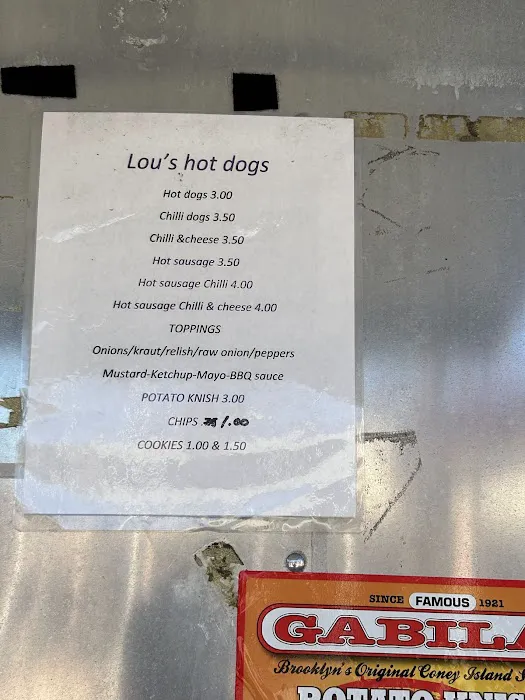 Lou's hot dogs
Hot dogs 3.00
Chilli dogs 3.50
Chilli &cheese 3.50
Hot sausage 3.50
Hot sausage Chilli 4.00
Hot sausage Chilli & cheese 4.00
TOPPINGS
Onions/kraut/relish/raw onion/peppers
Mustard-Ketchup-Mayo-BBQ sauce
POTATO KNISH 3.00
CHIPS 1.00
COOKIES 1.00 & 1.50
SINCE FAMOUS 1921
GABILA
Brooklyn's Original Coney Island
POTATO